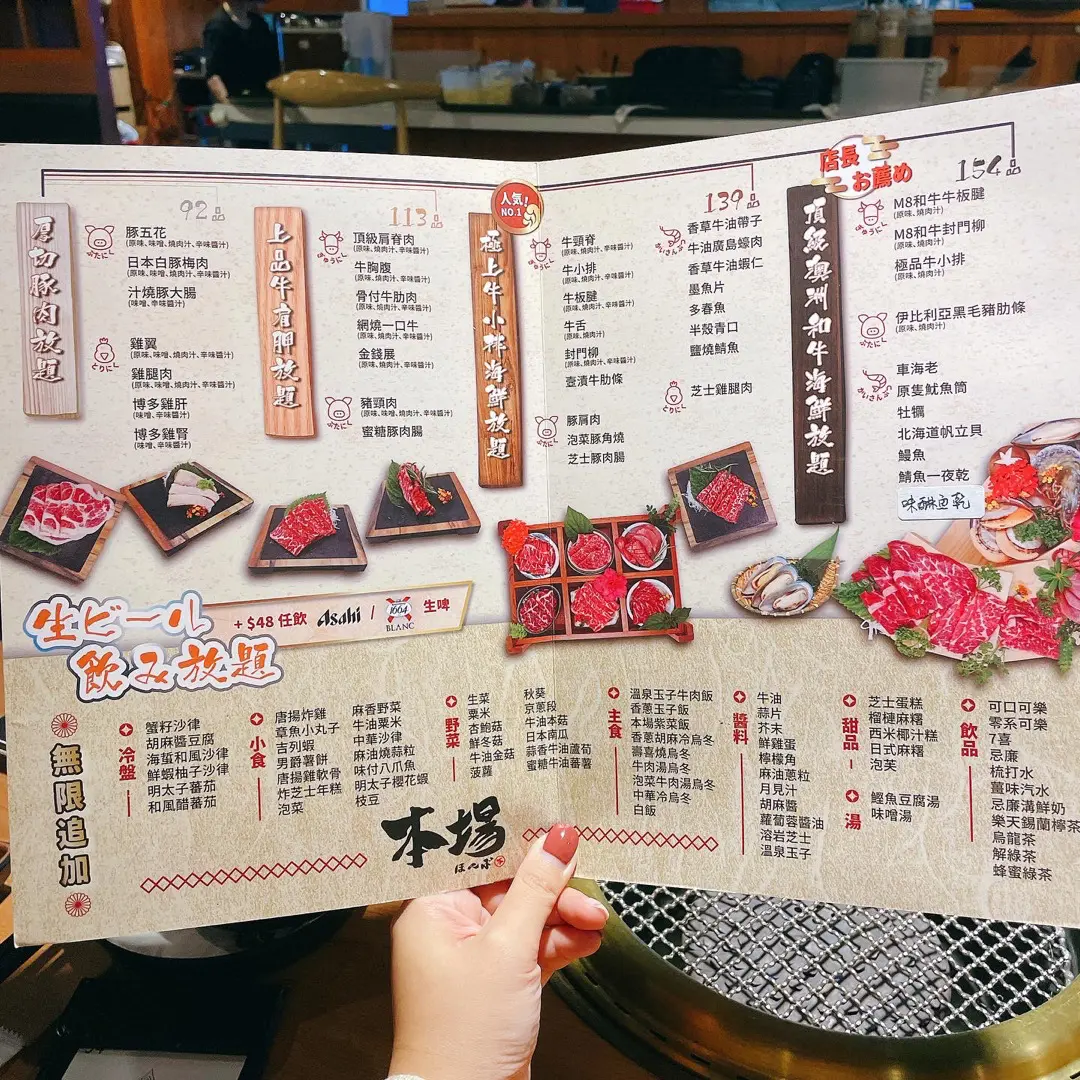 厚切豚肉放題
92品
ぶたにし
豚五花
(原味、味噌、燒肉汁、辛味醬汁)
日本白豚梅肉
(原味、味噌、燒肉汁、辛味醬汁)
汁燒豚大腸
(味噌、辛味醬汁)
とりにし
雞翼
(原味、味噌、燒肉汁、辛味醬汁)
雞腿肉
(原味、味噌、燒肉汁、辛味醬汁)
博多雞肝
(味噌、辛味醬汁)
博多雞腎
(味噌、辛味醬汁)
上品牛肩胛放題
113品
ぎゅうにし
頂級肩脊肉
(原味、燒肉汁、辛味醬汁)
牛胸腹
(原味、燒肉汁、辛味醬汁)
骨付牛肋肉
(原味、燒肉汁、辛味醬汁)
網燒一口牛
(原味、燒肉汁、辛味醬汁)
金錢展
(原味、燒肉汁、辛味醬汁)
ぶたにし
豬頸肉
(原味、味噌、燒肉汁、辛味醬汁)
蜜糖豚肉腸
人気!
NO.1
極上牛小排海鮮放題
139品
ぎゅうにし
牛頸脊
(原味、燒肉汁、辛味醬汁)
牛小排
(原味、燒肉汁、辛味醬汁)
牛板腱
(原味、燒肉汁、辛味醬汁)
牛舌
(原味、燒肉汁)
封門柳
(原味、燒肉汁、辛味醬汁)
壺漬牛肋條
ぶたにし
豚肩肉
泡菜豚角燒
芝士豚肉腸
かいさんぶつ
香草牛油帶子
牛油廣島蠔肉
香草牛油蝦仁
墨魚片
多春魚
半殼青口
鹽燒鯖魚
とりにし
芝士雞腿肉
店長
お薦め
頂級澳洲和牛海鮮放題
154品
ぎゅうにし
M8和牛牛板腱
(原味、燒肉汁)
M8和牛封門柳
(原味、燒肉汁)
極品牛小排
(原味、燒肉汁)
ぶたにし
伊比利亞黑毛豬肋條
(原味、燒肉汁)
かいさんぶつ
車海老
原隻魷魚筒
牡蠣
北海道帆立貝
鰻魚
鯖魚一夜乾
味醂魚乾
生ビール
飲み放題
+ $48 任飲 Asahi / 1664 BLANC 生啤
無限追加
冷盤
蟹籽沙律
胡麻醬豆腐
海蜇和風沙律
鮮蝦柚子沙律
明太子蕃茄
和風醋蕃茄
小食
唐揚炸雞
章魚小丸子
吉列蝦
男爵薯餅
唐揚雞軟骨
炸芝士年糕
泡菜
麻香野菜
牛油粟米
中華沙律
麻油燒蒜粒
味付八爪魚
明太子櫻花蝦
枝豆
野菜
生菜
粟米
杏鮑菇
鮮冬菇
牛油金菇
菠蘿
秋葵
京蔥段
牛油本菇
日本南瓜
蒜香牛油蘆荀
蜜糖牛油番薯
本場
ほんば
主食
溫泉玉子牛肉飯
香蔥玉子飯
本場紫菜飯
香蔥胡麻冷烏冬
壽喜燒烏冬
牛肉湯烏冬
泡菜牛肉湯烏冬
中華冷烏冬
白飯
醬料
牛油
蒜片
芥末
鮮雞蛋
檸檬角
麻油蔥粒
月見汁
胡麻醬
蘿蔔蓉醬油
溶岩芝士
溫泉玉子
甜品
芝士蛋糕
榴槤麻糬
西米椰汁糕
日式麻糬
泡芙
湯
鰹魚豆腐湯
味噌湯
飲品
可口可樂
零系可樂
7喜
忌廉
梳打水
薑味汽水
忌廉溝鮮奶
樂天錫蘭檸茶
烏龍茶
解綠茶
蜂蜜綠茶